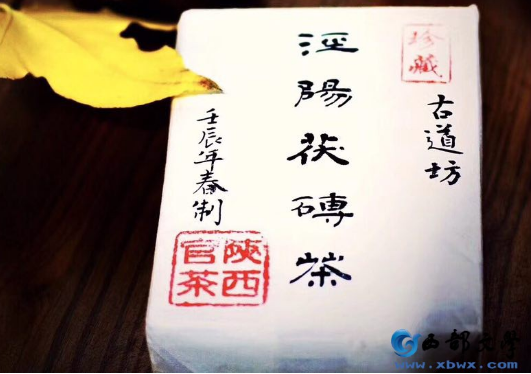 珍藏
古道坊
泾陽茯磚茶
壬辰年春制
陝西
官茶
西部文學
www.xbwx.com